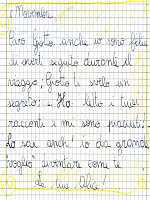 1 Novembre
Caro Giotto, anche io sono felice
di averti seguito durante il
viaggio, Giotto ti svelo un
segreto: - Ho letto i tuoi
racconti e mi sono piaciuti!
Lo sai anch'io da grande
voglio diventare come te
la tua Alice!